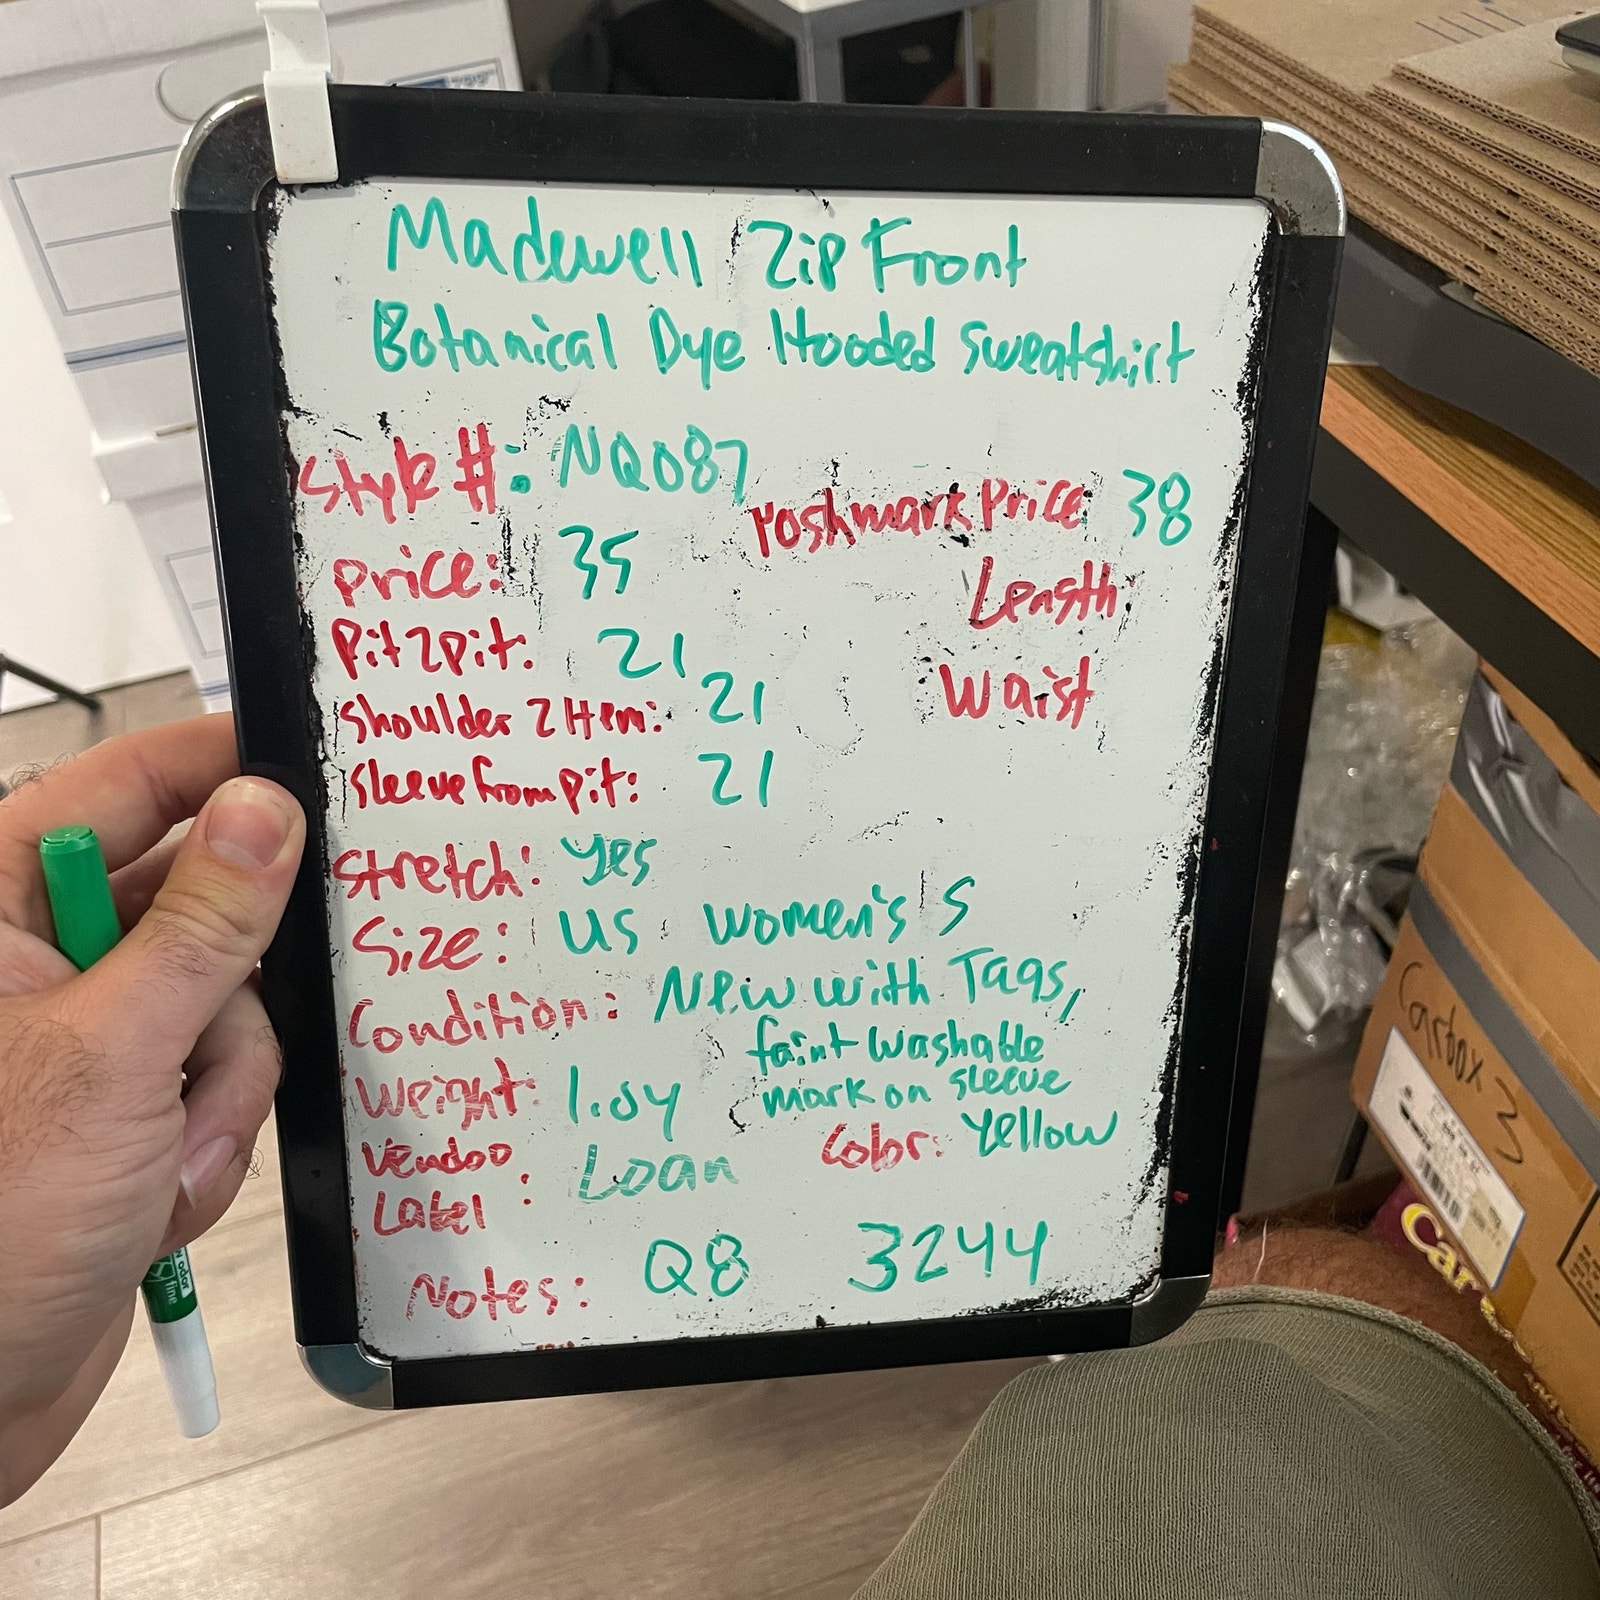 Madewell Zip Front
Botanical Dye Hooded Sweatshirt
Style #: NQ087
Poshmark Price 38
Price: 35
Length
Pit2pit: 21
Waist
Shoulder 2 Hem: 21
Sleeve from pit: 21
Stretch: Yes
Size: US Women's S
Condition: New with Tags,
faint washable
mark on sleeve
Weight: 1.04
Color: Yellow
Vendoo
Label: Loan
Notes: Q8 3244
Carbox 3
Car
odor
fine